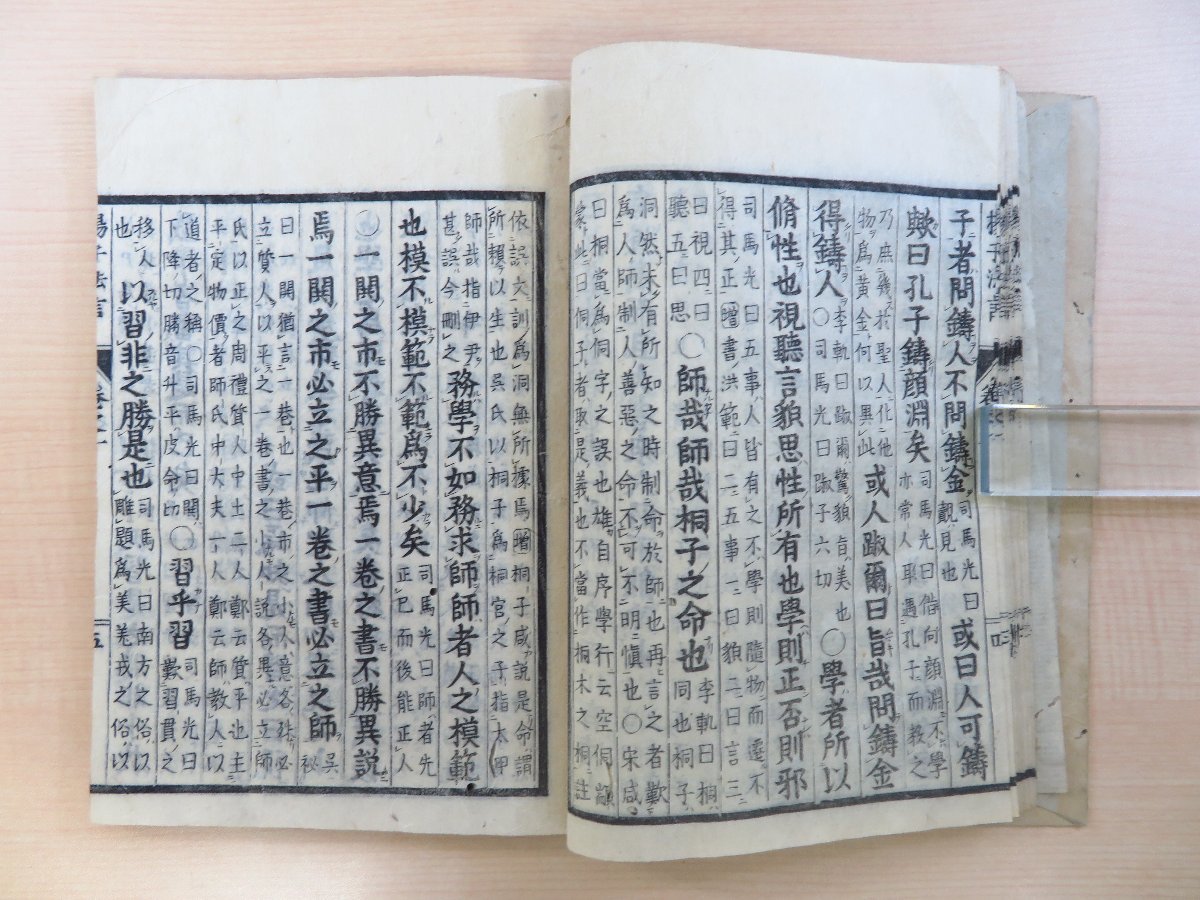 子者問鑄人不問鑄金司馬光曰覿見也或曰人可鑄
歟曰孔子鑄顏淵矣司馬光曰偕何顏淵不學亦常人耶遇孔子而教之
乃庶幾於聖人化他物爲黃金何以異此或人踧爾曰旨哉問鑄金
得鑄人李軌曰踧爾驚貌旨美也○司馬光曰踧子六切○學者所以
脩性也視聽言貌思性所有也學則正否則邪
司馬光曰五事人皆有之不學則隨物而遷不得其正增書洪範曰二五事一曰貌二曰言三
曰視四曰聽五曰思○師哉師哉桐子之命也李軌曰桐洞也桐子
洞然未有所知之時制命於師也再言之者歎爲人師制人善惡之命不可不明愼也○宋咸
曰桐當爲侗字之誤也雄自序學行云空侗顓蒙此曰侗子者取是義也不當作桐木之桐註
依誤文訓爲洞無所據焉增桐子咸說是命謂所賴以生也吳氏以桐子爲桐宮之子指太甲
師哉指伊尹甚誤今刪之務學不如務求師師者人之模範
也模不模範不範爲不少矣司馬光曰師者先正己而後能正人
○一閧之市不勝異意焉一卷之書不勝異說
焉一閧之市必立之平一卷之書必立之師吳祕
曰一閧猶言一巷也一巷市之小人意各殊必立質人以平之一卷書之小人說各異必立師
氏以正之周禮質人中士二人鄭云質平也主平定物價者師氏中大夫一人鄭云師教人以
道者之稱○司馬光曰閧下降切勝音升平皮命切○習乎習司馬光曰歎習貫之
移人也以習非之勝是也司馬光曰南方之俗以雕題爲美羌戎之俗以
揚子法言
卷之一
五
揚子法言
卷之一
四